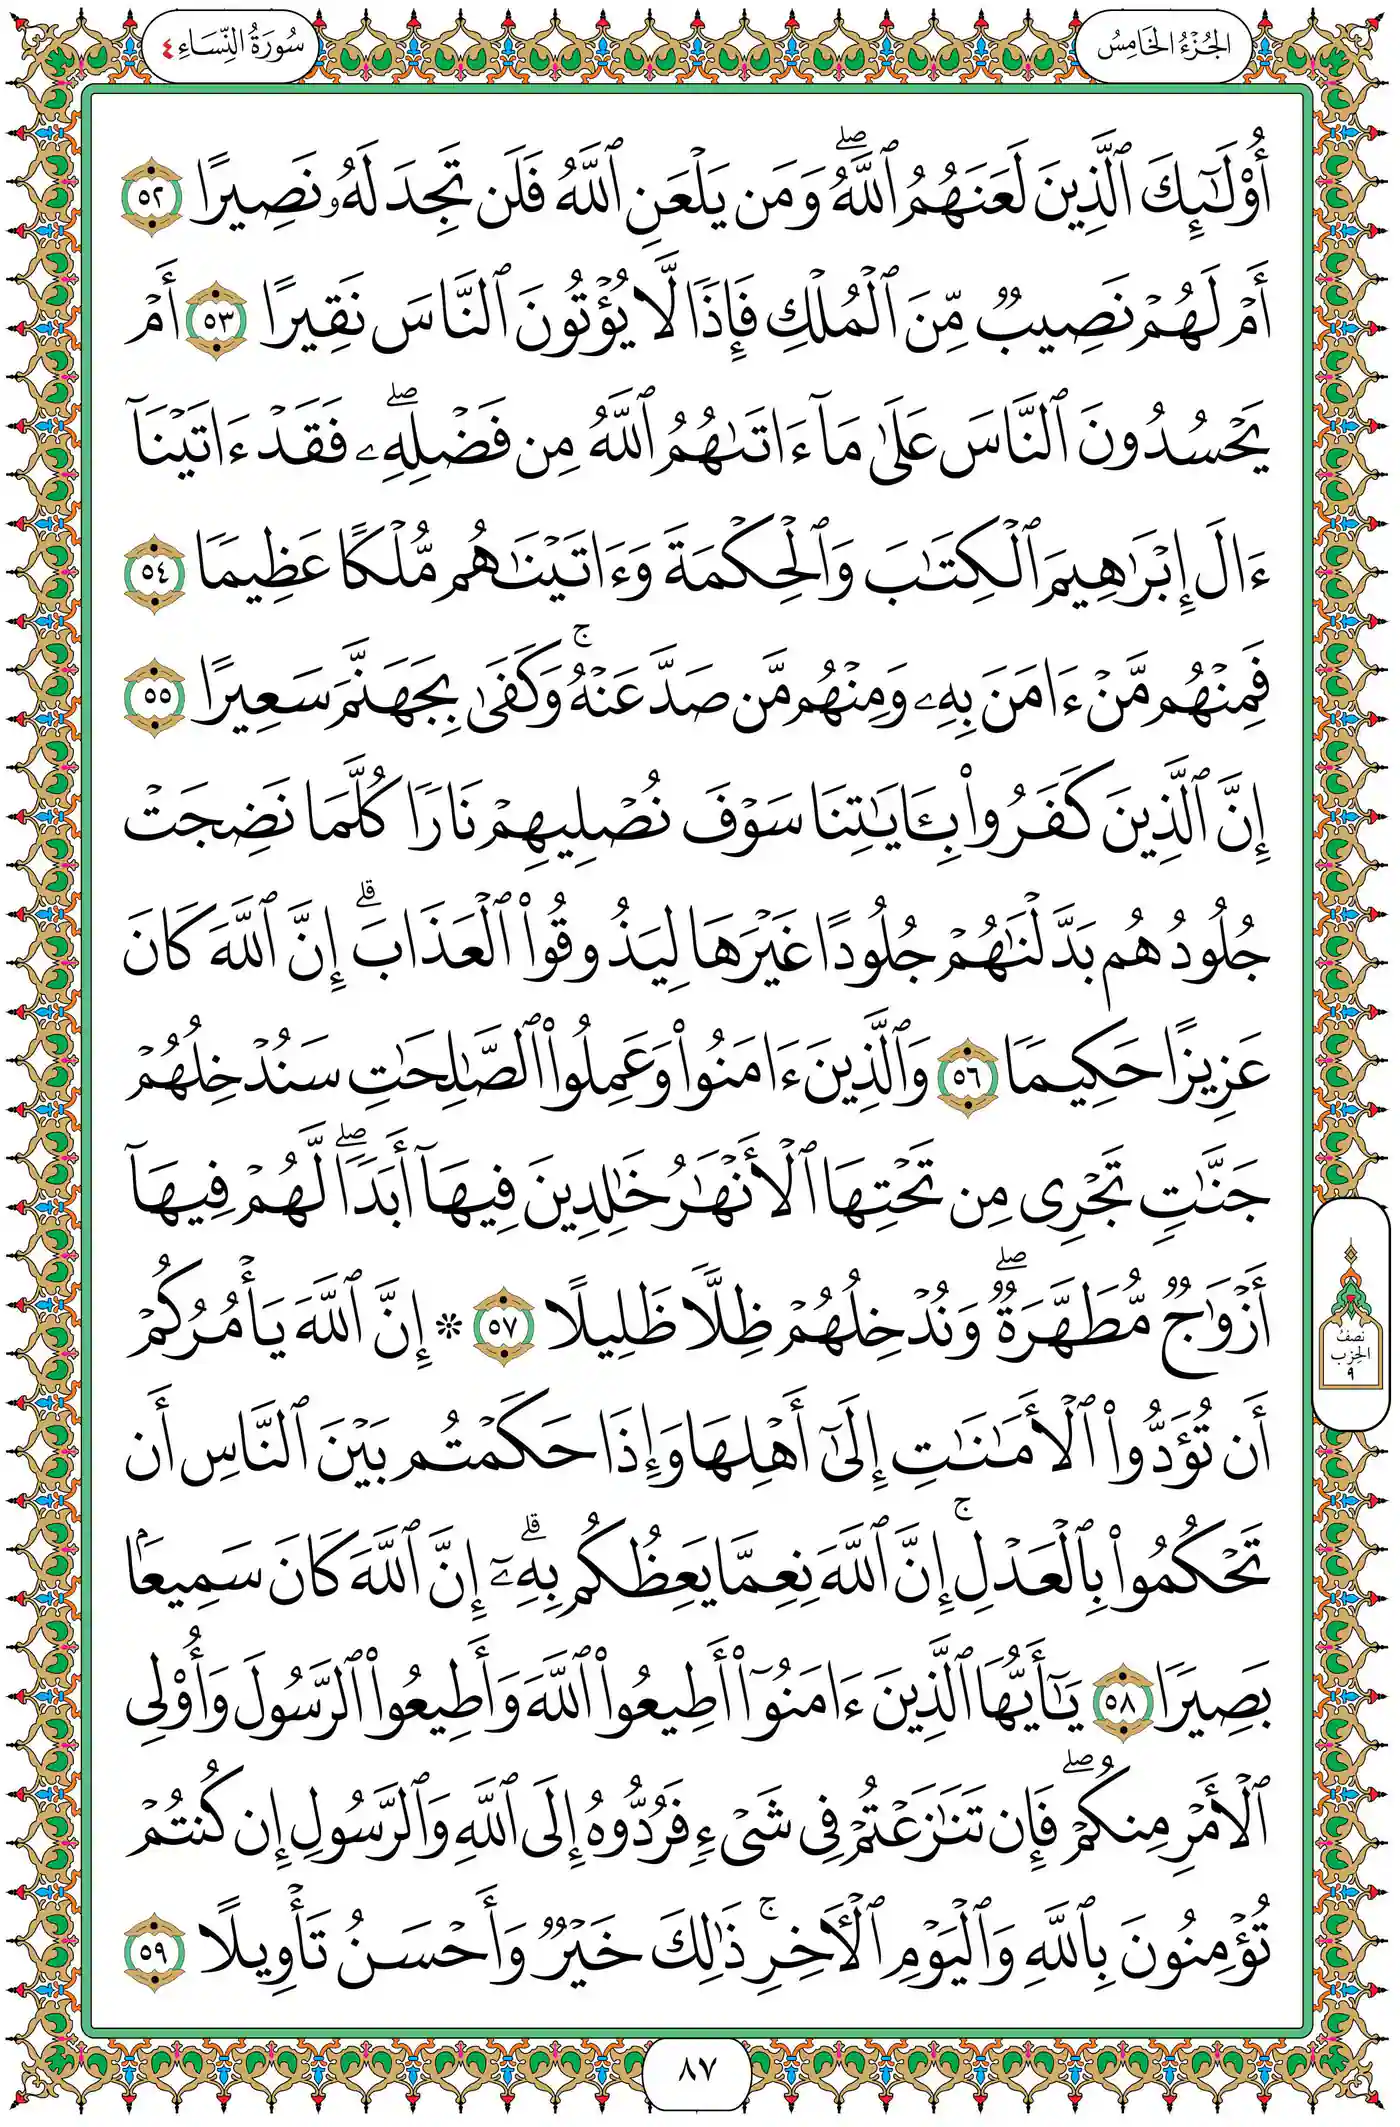 الجُزْءُ الخَامِسُ
سُورَةُ النِّسَاءِ ٤
أُوْلَٰٓئِكَ ٱلَّذِينَ لَعَنَهُمُ ٱللَّهُۖ وَمَن يَلْعَنِ ٱللَّهُ فَلَن تَجِدَ لَهُۥ نَصِيرًا ٥٢
أَمْ لَهُمْ نَصِيبٌ مِّنَ ٱلْمُلْكِ فَإِذًا لَّا يُؤْتُونَ ٱلنَّاسَ نَقِيرًا ٥٣ أَمْ
يَحْسُدُونَ ٱلنَّاسَ عَلَىٰ مَآ ءَاتَىٰهُمُ ٱللَّهُ مِن فَضْلِهِۦۖ فَقَدْ ءَاتَيْنَآ
ءَالَ إِبْرَٰهِيمَ ٱلْكِتَٰبَ وَٱلْحِكْمَةَ وَءَاتَيْنَٰهُم مُّلْكًا عَظِيمًا ٥٤
فَمِنْهُم مَّنْ ءَامَنَ بِهِۦ وَمِنْهُم مَّن صَدَّ عَنْهُۚ وَكَفَىٰ بِجَهَنَّمَ سَعِيرًا ٥٥
إِنَّ ٱلَّذِينَ كَفَرُوا۟ بِـَٔايَٰتِنَا سَوْفَ نُصْلِيهِمْ نَارًا كُلَّمَا نَضِجَتْ
جُلُودُهُم بَدَّلْنَٰهُمْ جُلُودًا غَيْرَهَا لِيَذُوقُوا۟ ٱلْعَذَابَۗ إِنَّ ٱللَّهَ كَانَ
عَزِيزًا حَكِيمًا ٥٦ وَٱلَّذِينَ ءَامَنُوا۟ وَعَمِلُوا۟ ٱلصَّٰلِحَٰتِ سَنُدْخِلُهُمْ
جَنَّٰتٍ تَجْرِى مِن تَحْتِهَا ٱلْأَنْهَٰرُ خَٰلِدِينَ فِيهَآ أَبَدًاۖ لَّهُمْ فِيهَآ
أَزْوَٰجٌ مُّطَهَّرَةٌۖ وَنُدْخِلُهُمْ ظِلًّا ظَلِيلًا ٥٧ ۞ إِنَّ ٱللَّهَ يَأْمُرُكُمْ
نصف
الحزب
٩
أَن تُؤَدُّوا۟ ٱلْأَمَٰنَٰتِ إِلَىٰٓ أَهْلِهَا وَإِذَا حَكَمْتُم بَيْنَ ٱلنَّاسِ أَن
تَحْكُمُوا۟ بِٱلْعَدْلِۚ إِنَّ ٱللَّهَ نِعِمَّا يَعِظُكُم بِهِۦٓۗ إِنَّ ٱللَّهَ كَانَ سَمِيعًۢا
بَصِيرًا ٥٨ يَٰٓأَيُّهَا ٱلَّذِينَ ءَامَنُوٓا۟ أَطِيعُوا۟ ٱللَّهَ وَأَطِيعُوا۟ ٱلرَّسُولَ وَأُوْلِى
ٱلْأَمْرِ مِنكُمْۖ فَإِن تَنَٰزَعْتُمْ فِى شَىْءٍ فَرُدُّوهُ إِلَى ٱللَّهِ وَٱلرَّسُولِ إِن كُنتُمْ
تُؤْمِنُونَ بِٱللَّهِ وَٱلْيَوْمِ ٱلْـَٔاخِرِۚ ذَٰلِكَ خَيْرٌ وَأَحْسَنُ تَأْوِيلًا ٥٩
٨٧